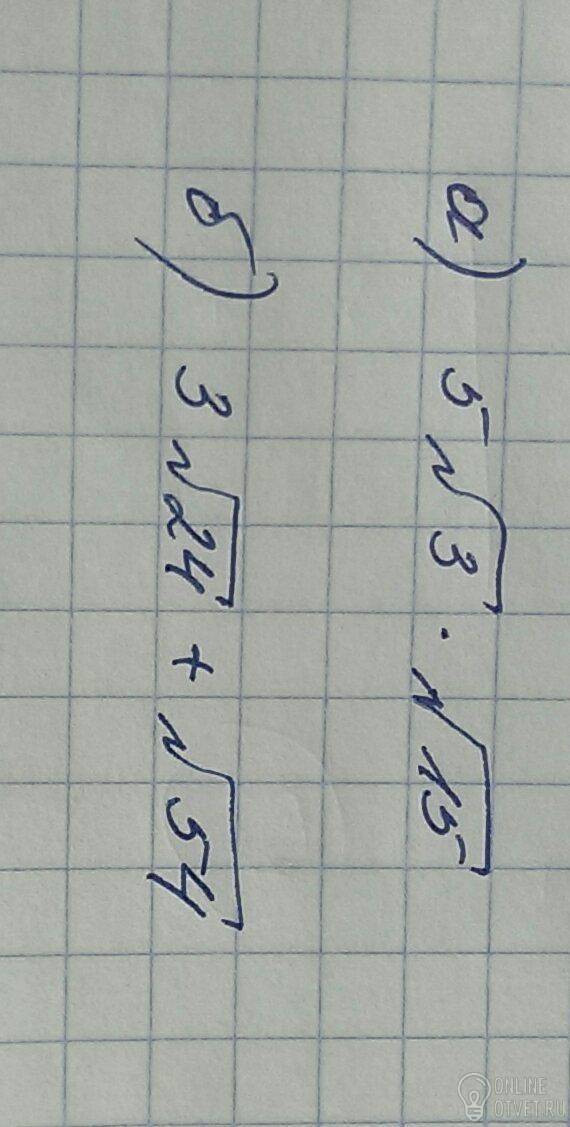 а) 5√3 · √15
б) 3√24 + √54
ONLINE
OTVET.RU